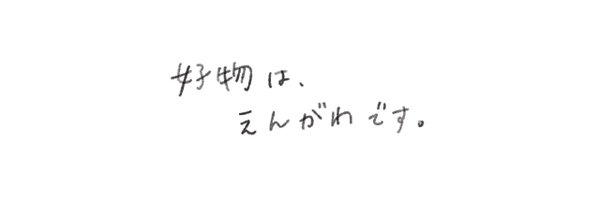 好物は、
えんがわです。